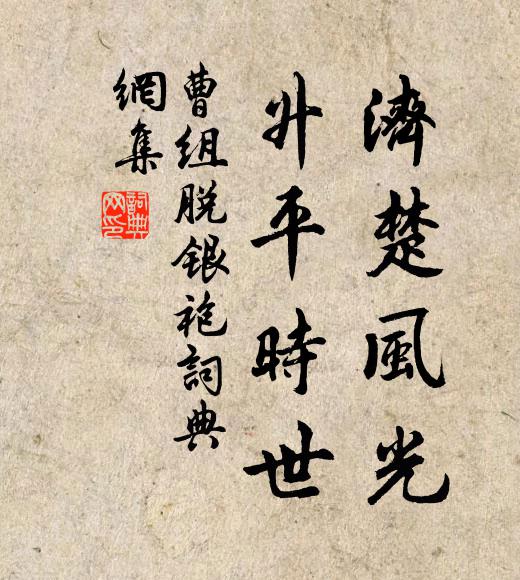 濟楚風光
升平時世
曹組脫銀袍詞典
網集
詞典
网印